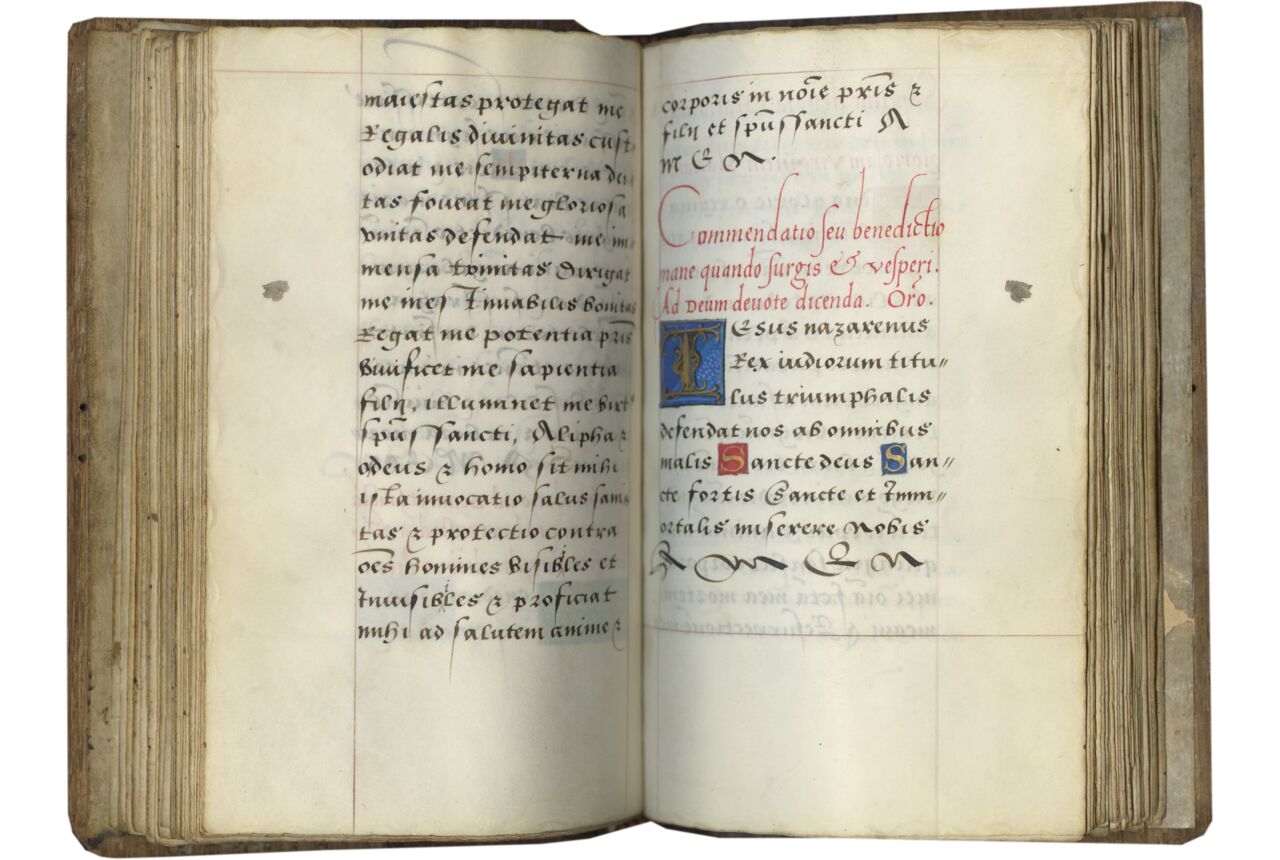 maiestas protegat me
Regalis diuinitas cust
odiat me sempiterna dei
tas foueat me gloriosa
vnitas defendat me im
mensa trinitas Dirigat
me inestimabilis bonitas
Regat me potentia pr̄is
Viuificet me sapientia
filij, illuminet me virt9
sp̄us Sancti, Alpha ⁊
odeus ⁊ homo sit mihi
ista inuocatio salus sani
tas ⁊ protectio contra
oēs homines visibles et
Inuisibles ⁊ proficiat
mihi ad salutem anime ⁊
corporis in nōie pr̄is ⁊
filij et sp̄us Sancti A
M E N.
Commendatio seu benedictio
mane quando surgis & vesperi.
Ad Deum deuote dicenda. Orō.
IEsus nazarenus
Rex iudiorum titu//
lus triumphalis
defendat nos ab omnibus
malis Sancte deus San//
cte fortis Sancte et Imm//
ortalis miserere Nobis
A M E N